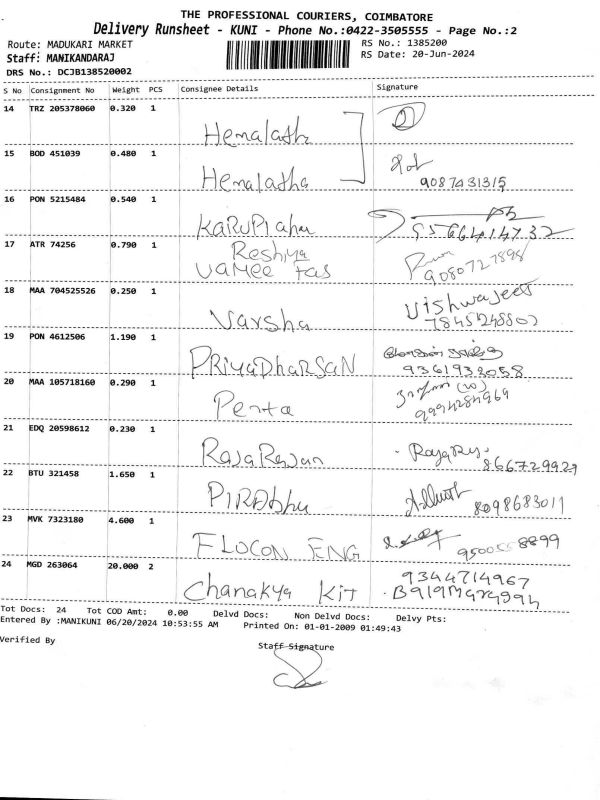 THE PROFESSIONAL COURIERS, COIMBATORE
Delivery Runsheet - KUNI - Phone No.:0422-3505555 - Page No.:2
Route: MADUKARI MARKET
RS No.: 1385200
Staff: MANIKANDARAJ
RS Date: 20-Jun-2024
DRS No.: DCJB138520002
S No Consignment No Weight PCS Consignee Details Signature
14 TRZ 205378060 0.320 1
Hemalath
15 BOD 451039 0.480 1
Hemalatha 9087431315
16 PON 5215484 0.540 1
17 ATR 74256 0.790 1
Reshma
9080727898
18 MAA 704525526 0.250 1
Varsha
Vishwajeet
7845248802
19 PON 4612506 1.190 1
PRIYADHARSAN
9361932058
20 MAA 105718160 0.290 1
Penta
21 EDQ 20598612 0.230 1
RajaRajan
866729929
22 BTU 321458 1.650 1
PIRAbhu
8098683011
23 MVK 7323180 4.600 1
FLOCON ENG
24 MGD 263064 20.000 2
Chanakya Kit
9344714967
Tot Docs: 24 Tot COD Amt: 0.00 Delvd Docs: Non Delvd Docs: Delvy Pts:
Entered By :MANIKUNI 06/20/2024 10:53:55 AM Printed On: 01-01-2009 01:49:43
Verified By
Staff Signature